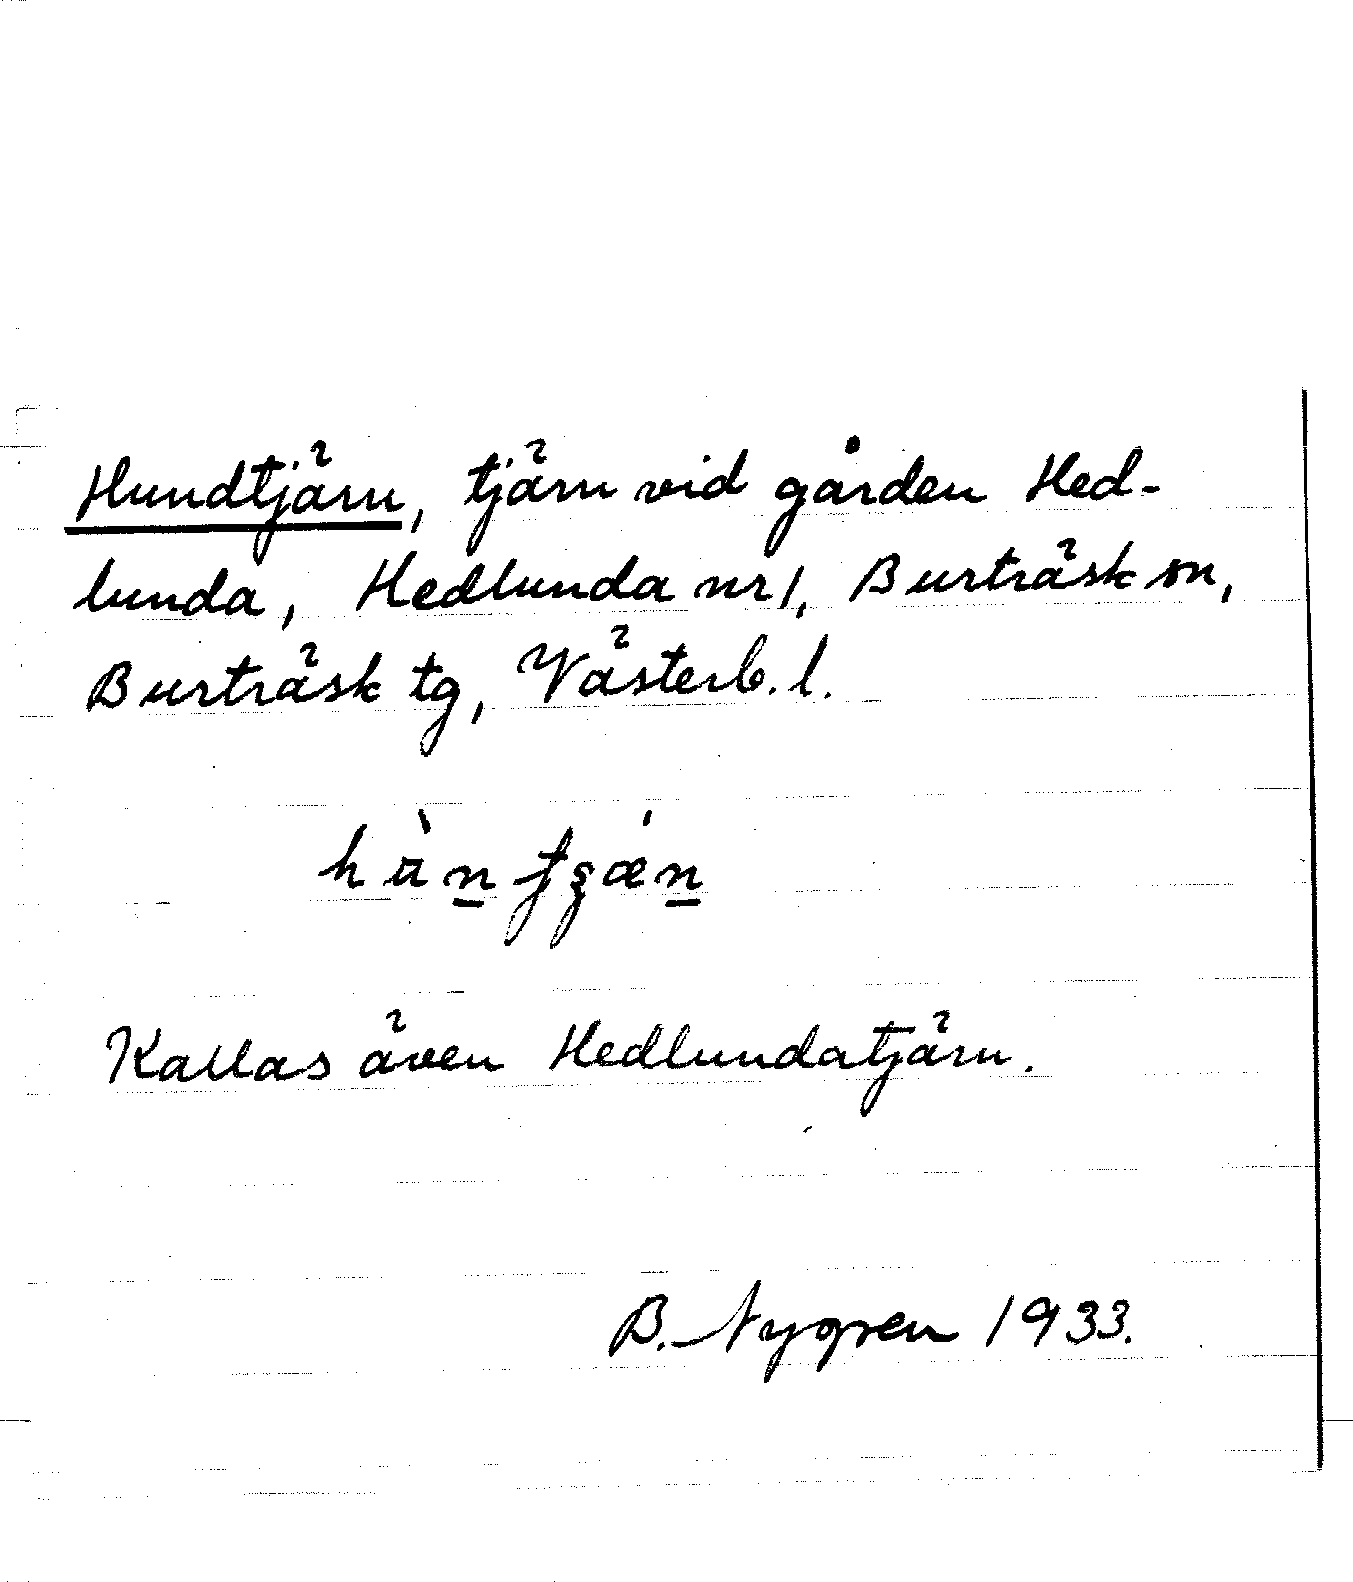 Hundtjärn, tjärn vid gården Hed-
lunda, Hedlunda nr 1, Burträsk sn,
Burträsk tg, Västerb. l.
Kallas även Hedlundatjärn.
B. Nygren 1933.